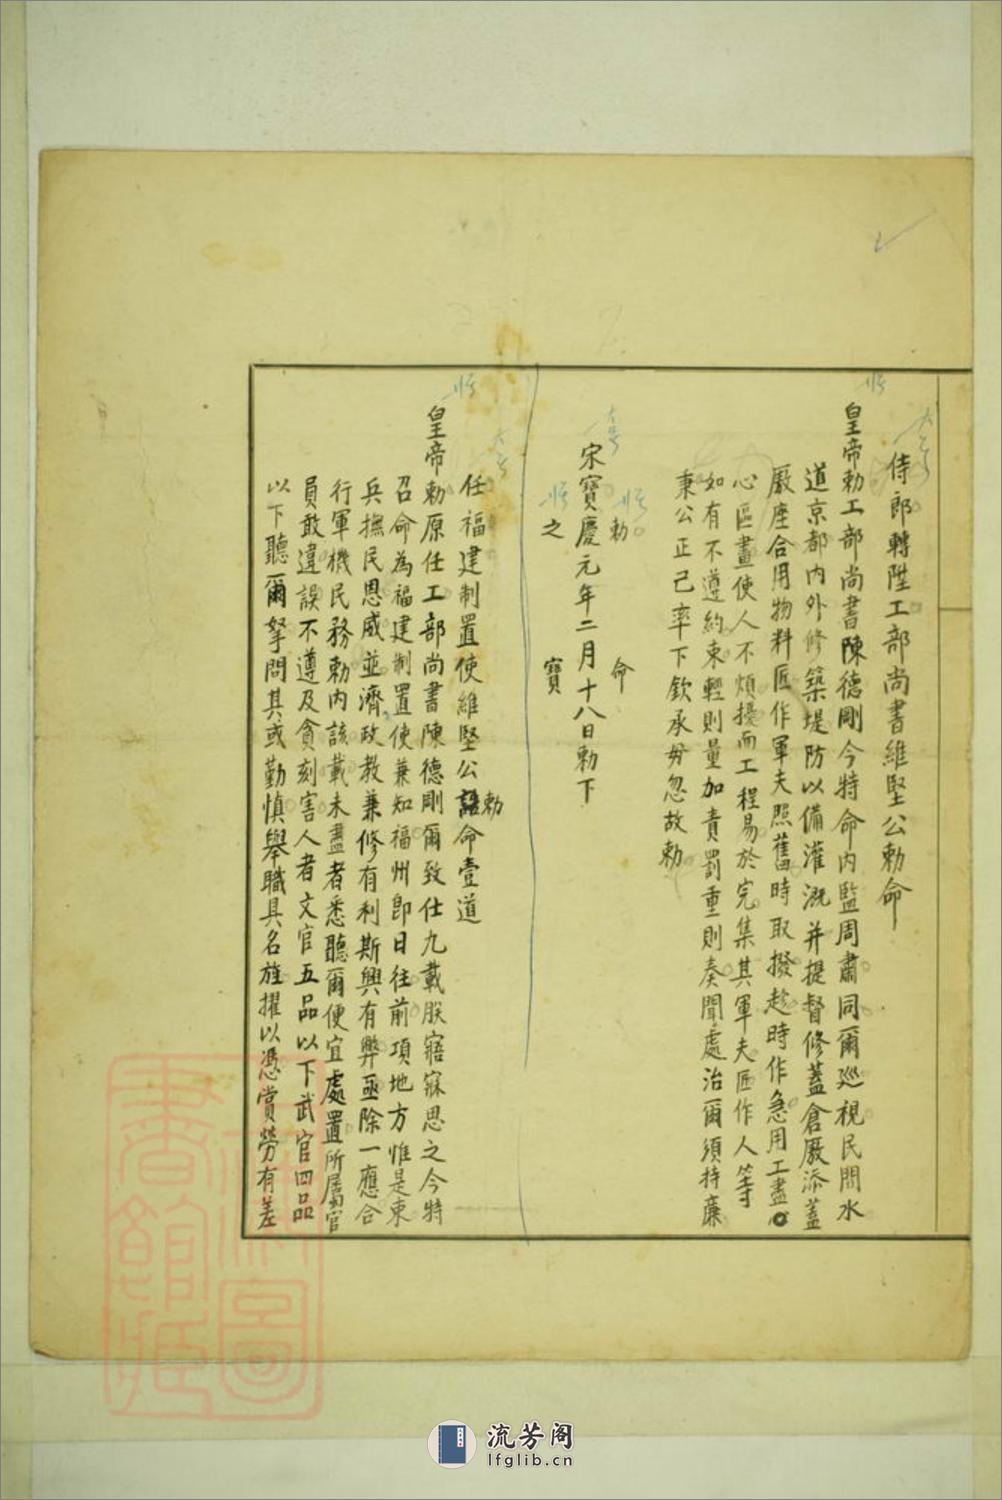 侍郎轉陞工部尚書維堅公勅命
皇帝勅工部尚書陳德剛今特命內監周肅同爾廵視民間水
道京都內外修築堤防以備灌溉并提督修蓋倉厫添蓋
厫座合用物料匠作軍夫照舊時取撥趁時作急用工盡
心區畫使人不煩擾而工程易於完集其軍夫匠作人等
如有不遵約束輕則量加責罰重則奏聞處治爾須持廉
秉公正己率下欽承毋忽故勅
勅 命
宋寶慶元年二月十八日勅下
之 寶
任福建制置使維堅公勅命壹道
皇帝勅原任工部尚書陳德剛爾致仕九載朕寤寐思之今特
召命為福建制置使兼知福州卽日往前項地方惟是東
兵撫民恩威並濟政教兼修有利斯興有弊亟除一應合
行軍機民務勅內該載未盡者悉聽爾便宜處置所屬官
員敢違誤不遵及貪刻害人者文官五品以下武官四品
以下聽爾拏問其或勤慎舉職具名旌擢以憑賞勞有差
流芳阁
lfglib.cn